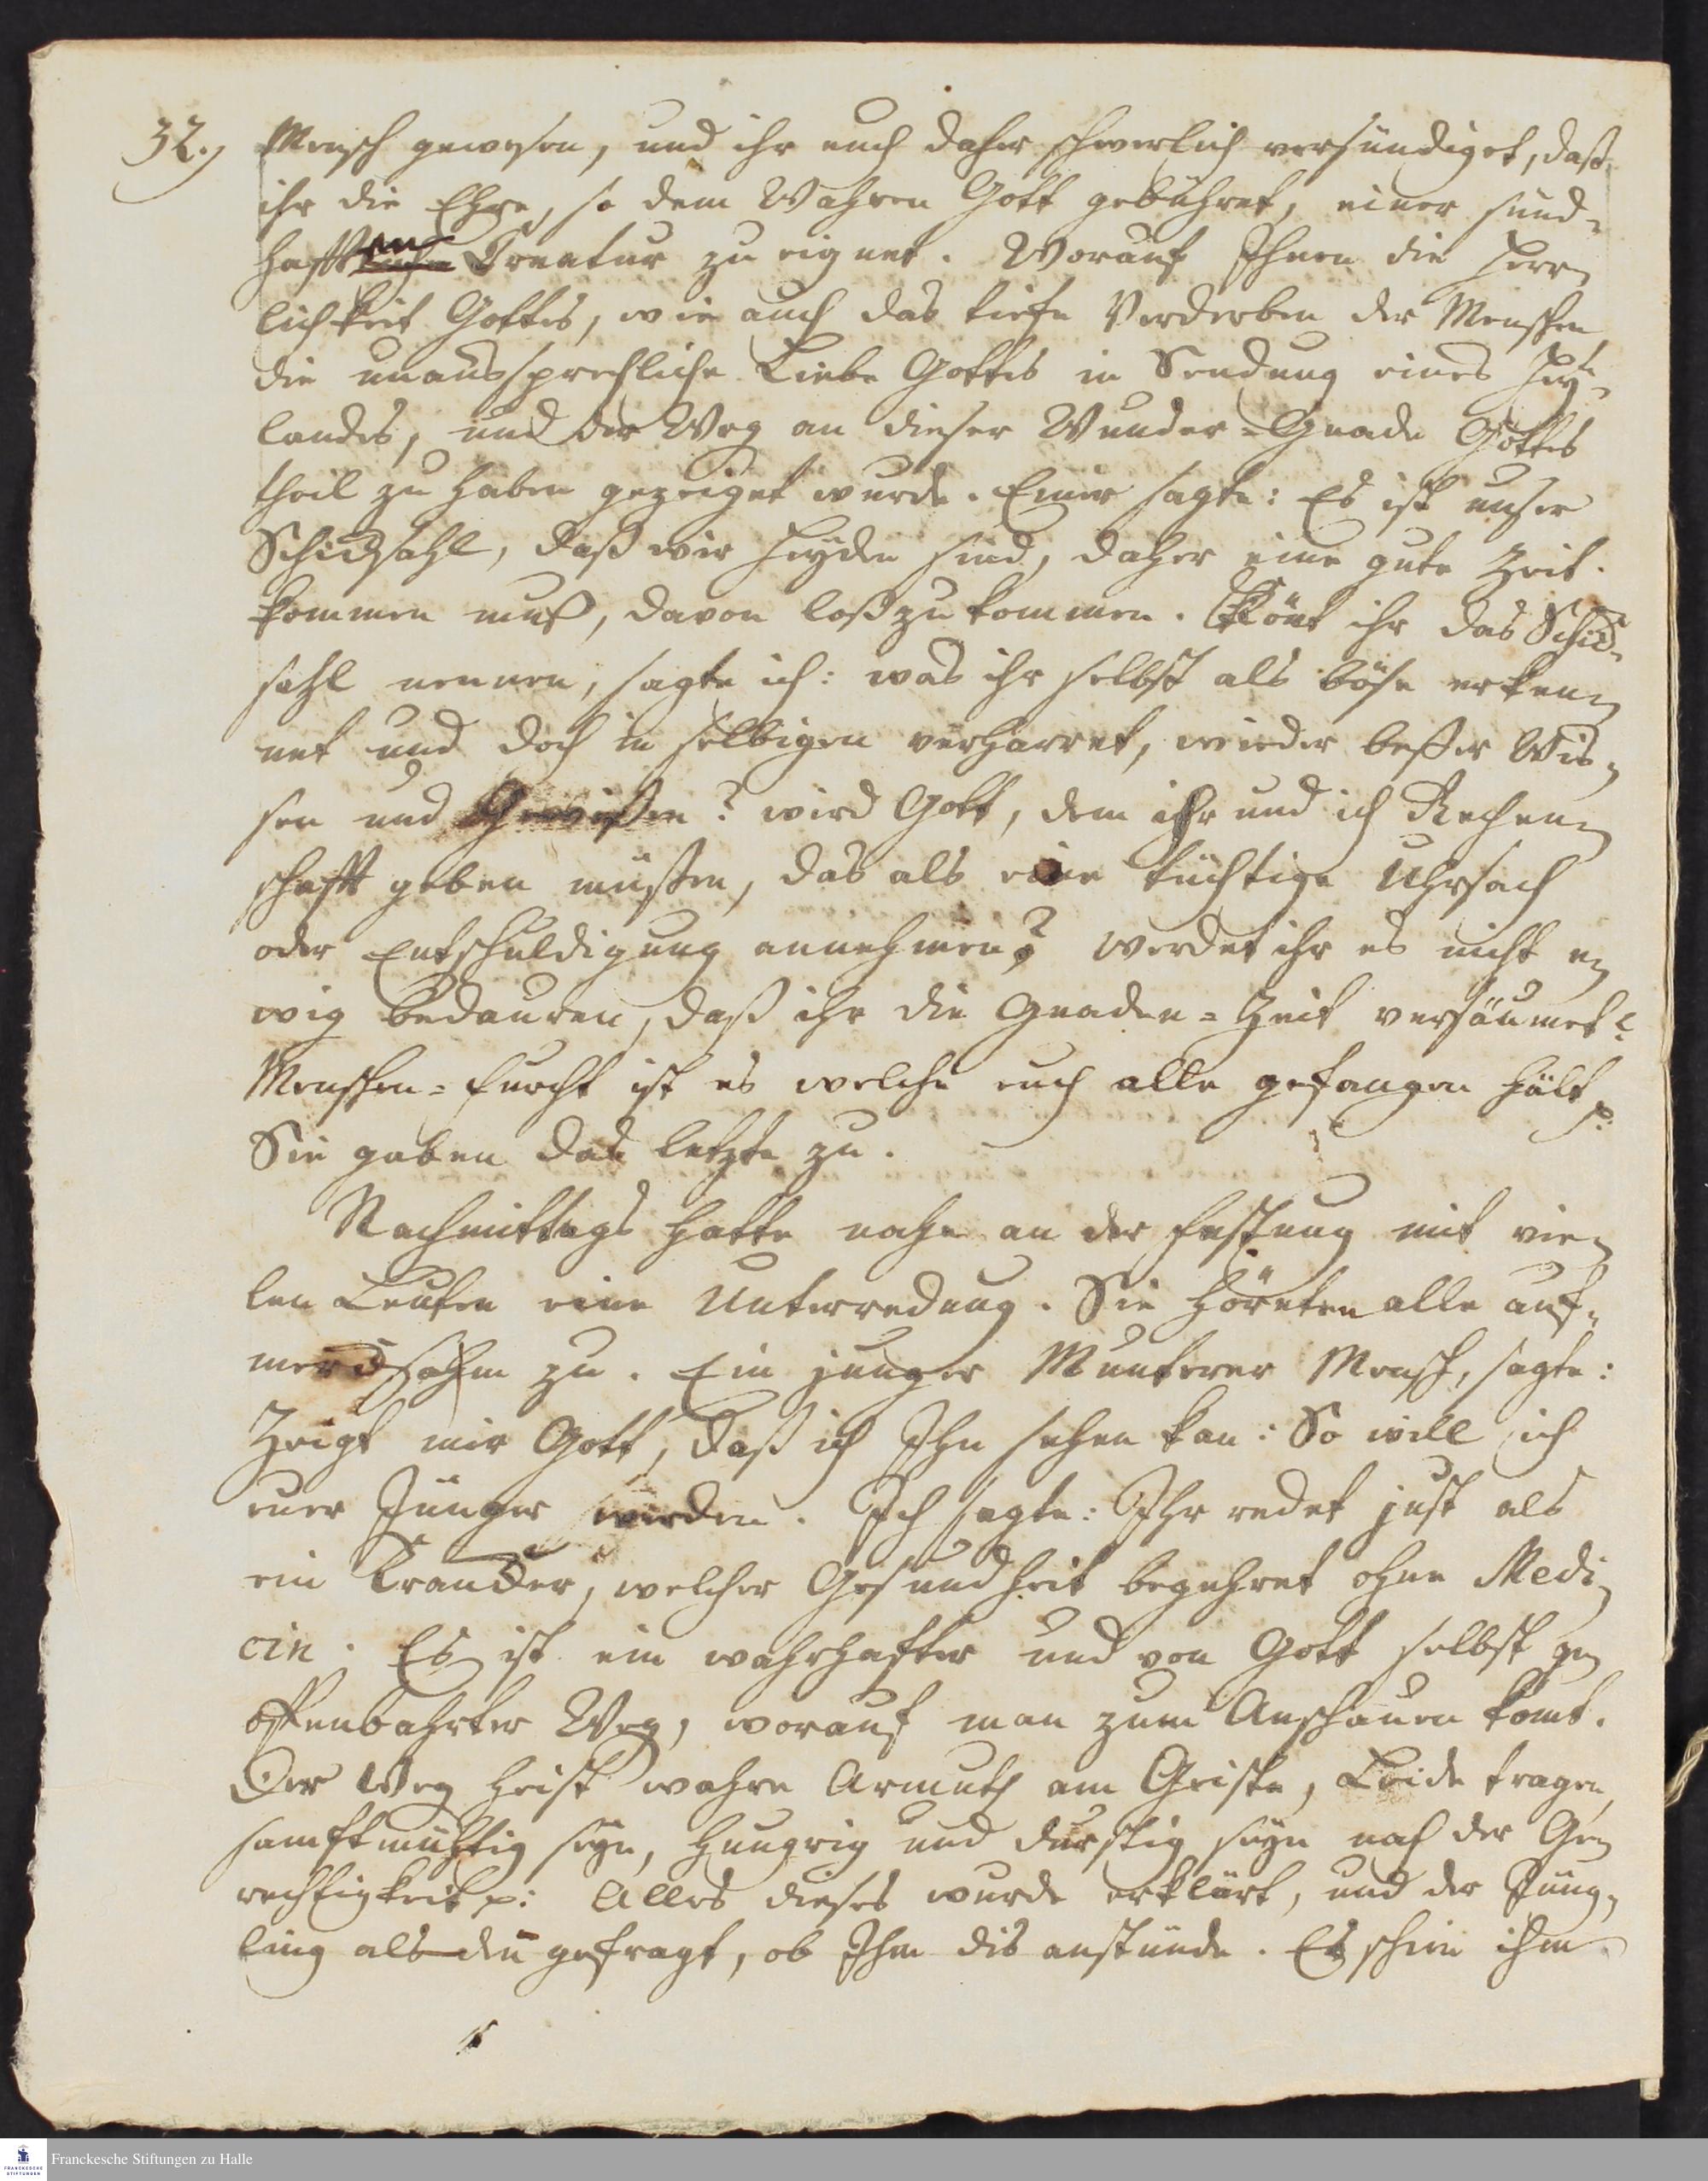 32., Mensch gewesen, und ihr euch daher schwerlich versündiget, daß
ihr die Ehre, so dem Wahren Gott gebühret, einer sünd-
hafften Creatur zu eignet. Worauf Ihnen die Herr-
lichkeit Gottes, wie auch das tiefe Verderben der Menschen,
die unaussprechliche Liebe Gottes in Sendung eines Hey-
landes, und der Weg an dieser Wunder-Gnade Gottes
theil zu haben gezeiget wurde. Einer sagte: Es ist unser
Schicksahl, daß wir Heyden sind, daher eine gute Zeit
kommen muß, davon loßzukommen. Könt ihr das Schick-
sahl nennen, sagte ich: was ihr selbst als böse erken-
net und doch in selbigen verharret, wieder beßer Wis-
sen und Gewißen? wird Gott, dem ihr und ich Rechen-
schafft geben müßen, das als eine tüchtige Uhrsach
oder Entschuldigung annehmen? werdet ihr es nicht e-
wig bedauren, daß ihr die Gnaden-Zeit versäumet?
Menschen-furcht ist es welche euch alle gefangen hält p.
Sie gaben das letzte zu.
Nachmittags hatte nahe an der Festung mit vie-
len Leuten eine Unterredung. Sie höreten alle auf-
mercksahm zu. Ein junger Munterer Mensch, sagte:
Zeigt mir Gott, daß ich Ihn sehen kan: So will ich
euer Jünger werden. Ich sagte: Ihr redet just als
ein Krancker, welcher Gesundheit begehret ohne Medi-
cin. Es ist ein wahrhafter und von Gott selbst ge-
offenbahrter Weg, worauf man zum Anschauen komt.
Der Weg heist wahre Armuth am Geiste, Leide tragen,
sanftmüthig seyn, hungrig und durstig seyn nach der Ge-
rechtigkeit p: Alles dieses wurde erklärt, und der Jüng-
ling als den gefragt, ob Ihm dis anstünde. Es schien ihm
Franckesche Stiftungen zu Halle